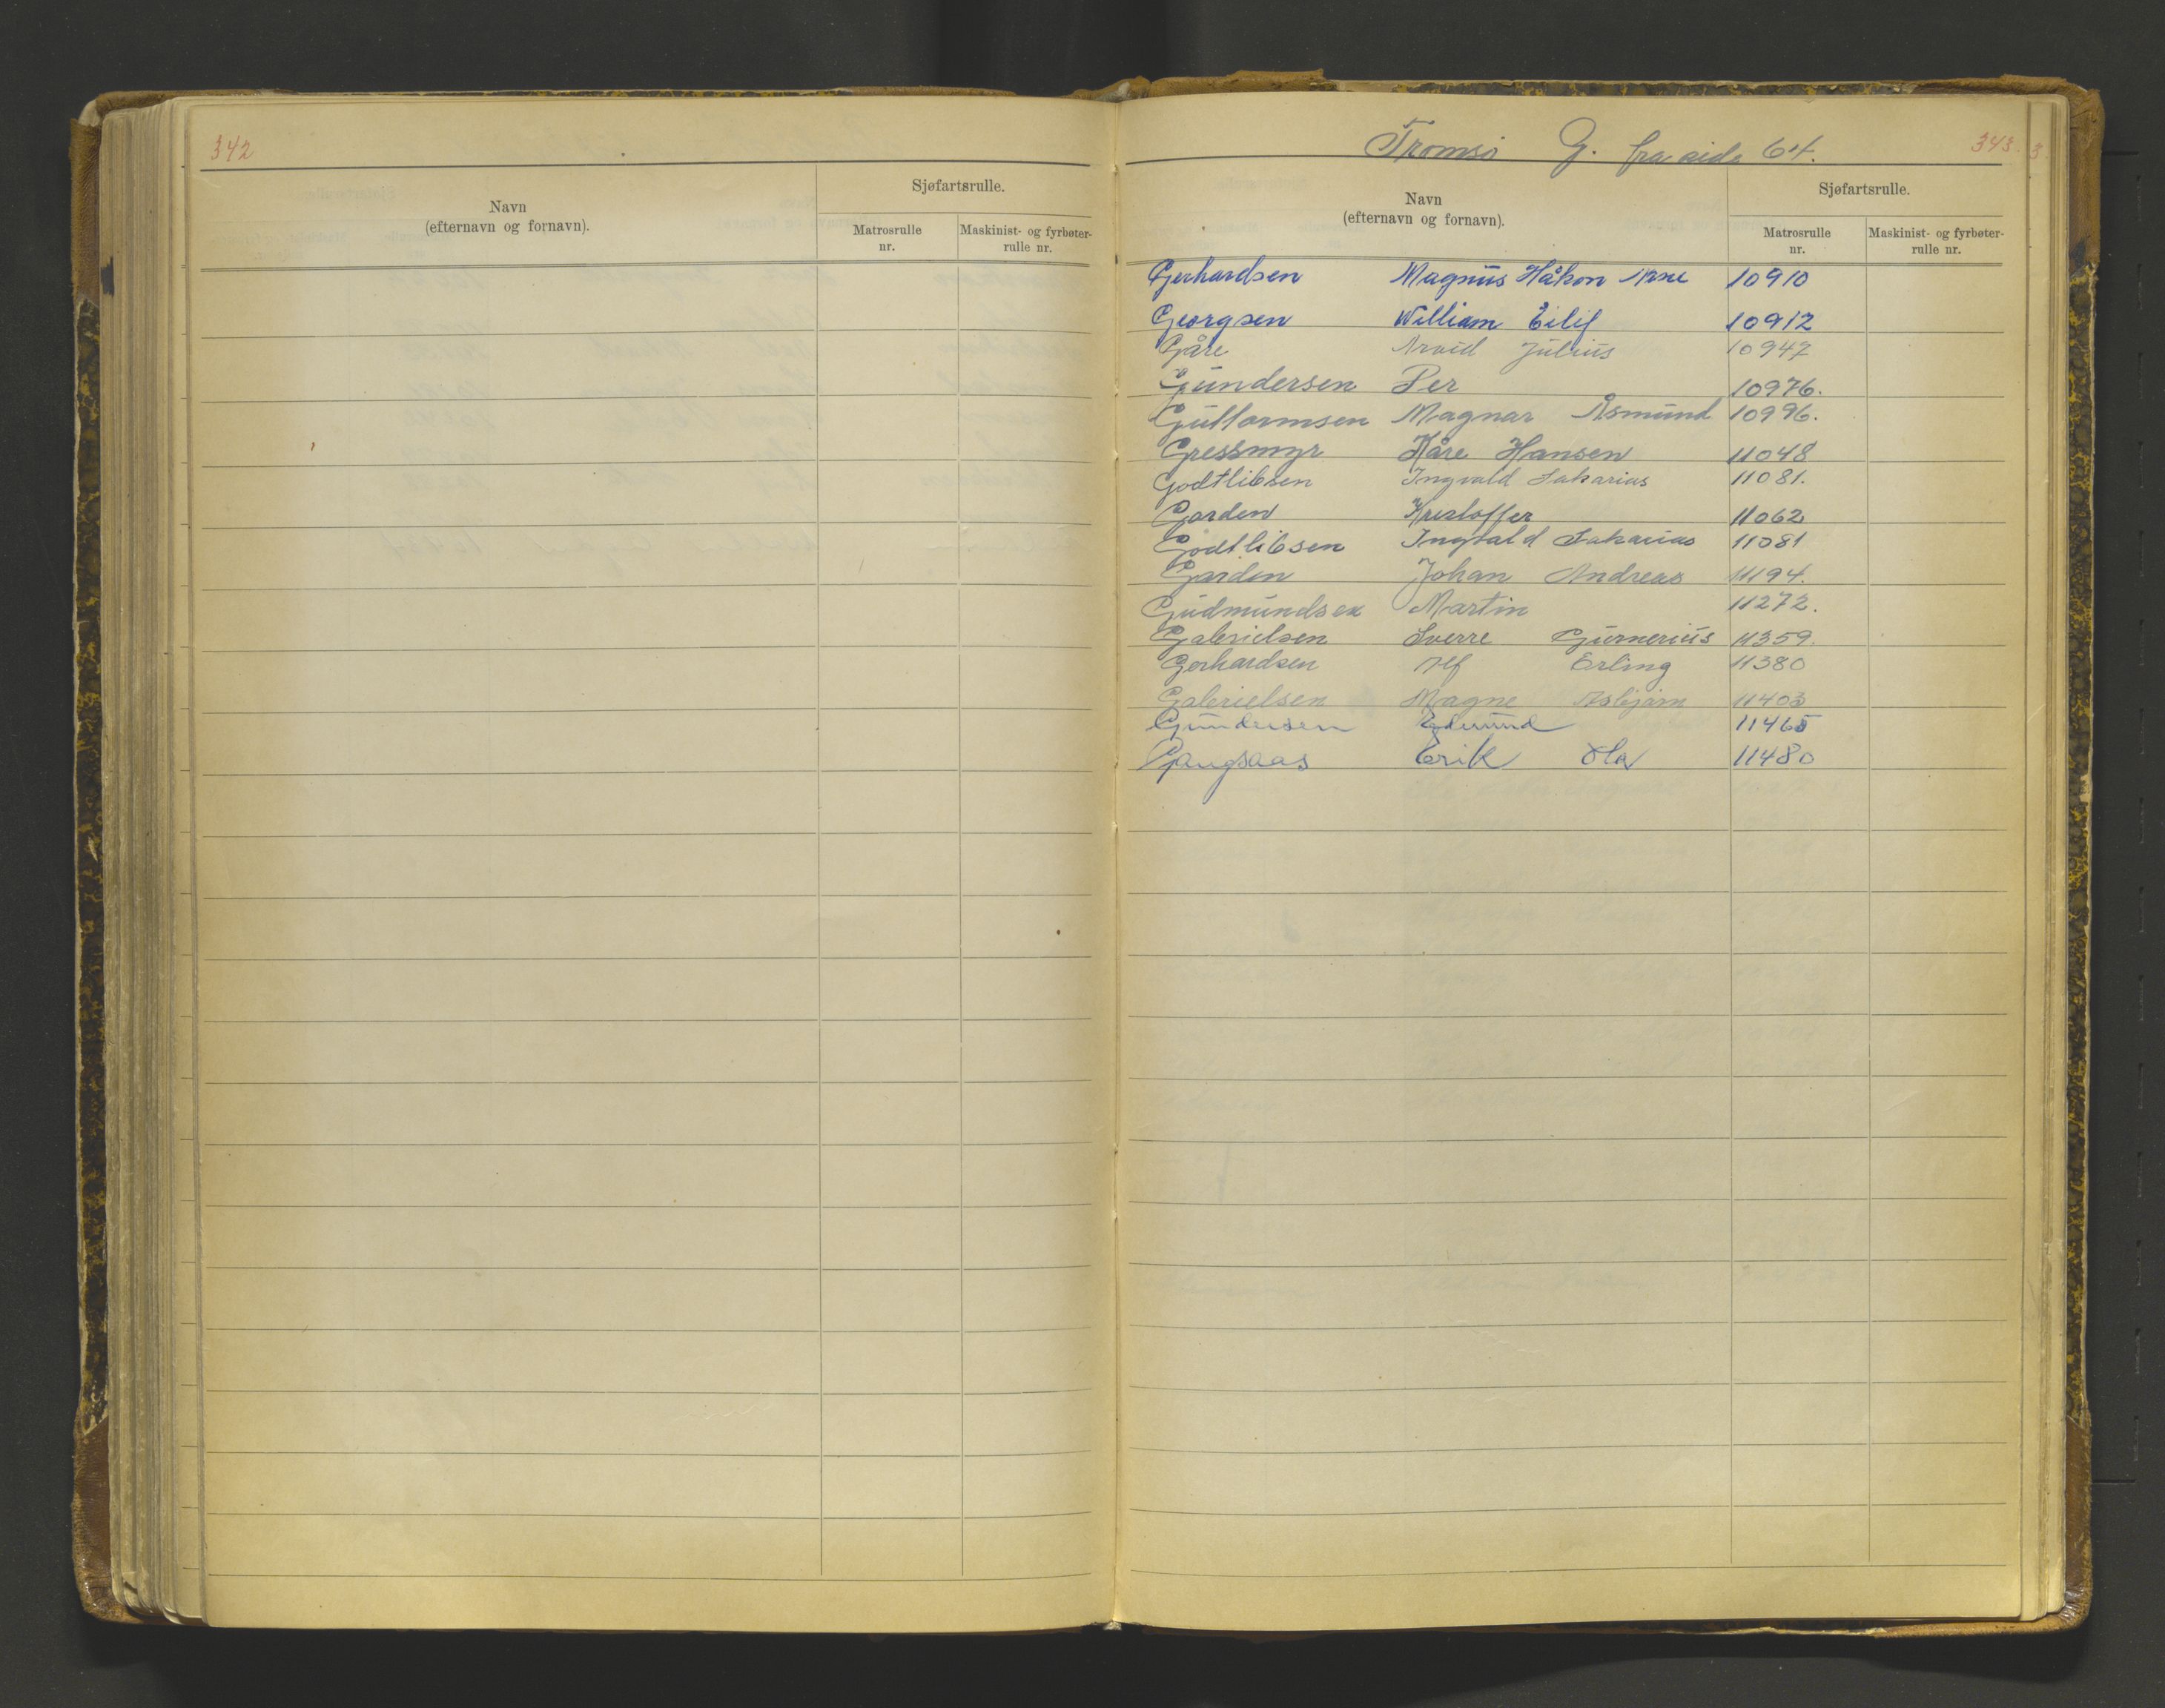 342
Navn
(efternavn og fornavn).
Sjøfartsrulle.
Matrosrulle
nr.
Maskinist- og fyrbøter-
rulle nr.
Tromsø G. fra side 64.
343.
Navn
(efternavn og fornavn).
Sjøfartsrulle.
Matrosrulle
nr.
Maskinist- og fyrbøter-
rulle nr.
Gerhardsen Magnus Håkon Arne 10910
Georgsen William Eilif 10912
Gåre Arvid Julius 10947
Gundersen Per 10976.
Guttormsen Magnar Åsmund 10996.
Gressmyr Kåre Hansen 11048
Godtlibsen Ingvald Sakarias 11081.
Garden Kristoffer 11062
Godtlibsen Ingvald Sakarias 11081
Garden Johan Andreas 11194.
Gudmundsen Martin 11272.
Gabrielsen Sverre Gunnerius 11359.
Gerhardsen Alf Erling 11380
Gabrielsen Magne Asbjørn 11403
Gundersen Edmund 11465
Gaugsaas Erik Ola 11480